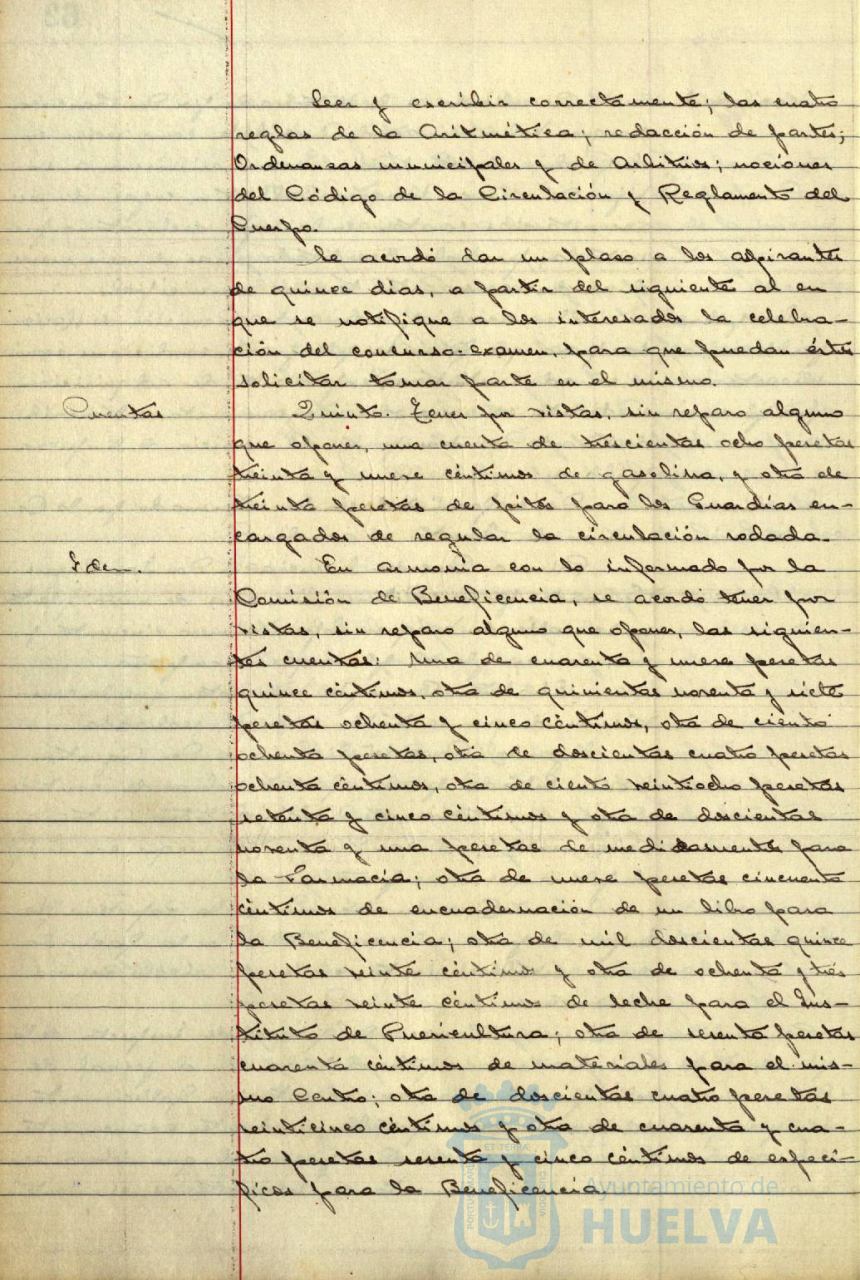 Leer y escribir correctamente; las cuatro
reglas de la Aritmética; redacción de partes;
Ordenanzas municipales y de Arbitrios; nociones
del Código de la Circulación y Reglamento del
Cuerpo.
Se acordó dar un plazo a los aspirantes
de quince días, a partir del siguiente al en
que se notifique a los interesados la celebra-
ción del concurso-examen, para que puedan éstos
solicitar tomar parte en el mismo.
Cuentas
Quinto. Tener por vistas, sin reparo alguno
que oponer, una cuenta de trescientas ocho pesetas
treinta y nueve céntimos de gasolina, y otra de
treinta pesetas de pitos para los Guardias en-
cargados de regular la circulación rodada.
Idem.
En armonía con lo informado por la
Comisión de Beneficencia, se acordó tener por
vistas, sin reparo alguno que oponer, las siguien-
tes cuentas: Una de cuarenta y nueve pesetas
quince céntimos, otra de quinientas noventa y siete
pesetas ochenta y cinco céntimos, otra de ciento
ochenta pesetas, otra de doscientas cuatro pesetas
ochenta céntimos, otra de ciento veintiocho pesetas
setenta y cinco céntimos y otra de doscientas
noventa y una pesetas de medicamentos para
la Farmacia; otra de nueve pesetas cincuenta
céntimos de encuadernación de un libro para
la Beneficencia; otra de mil doscientas quince
pesetas veinte céntimos y otra de ochenta y tres
pesetas veinte céntimos de leche para el Ins-
tituto de Puericultura; otra de sesenta pesetas
cuarenta céntimos de materiales para el mis-
mo Centro; otra de doscientas cuatro pesetas
veinticinco céntimos y otra de cuarenta y cua-
tro pesetas sesenta y cinco céntimos de especí-
ficos para la Beneficencia.
Ayuntamiento de
HUELVA